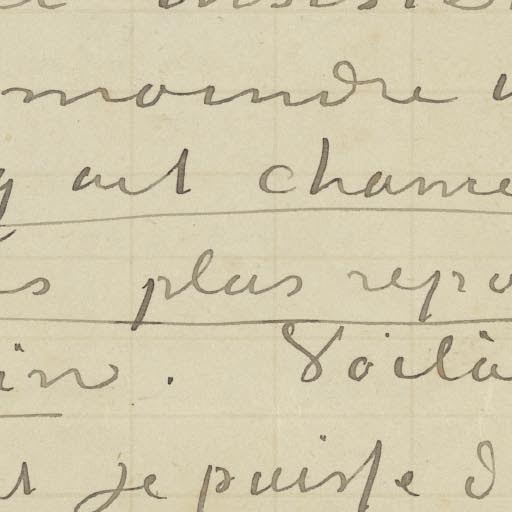 moindre
y ait chance
plus repo
in. Voilà
je puisse d